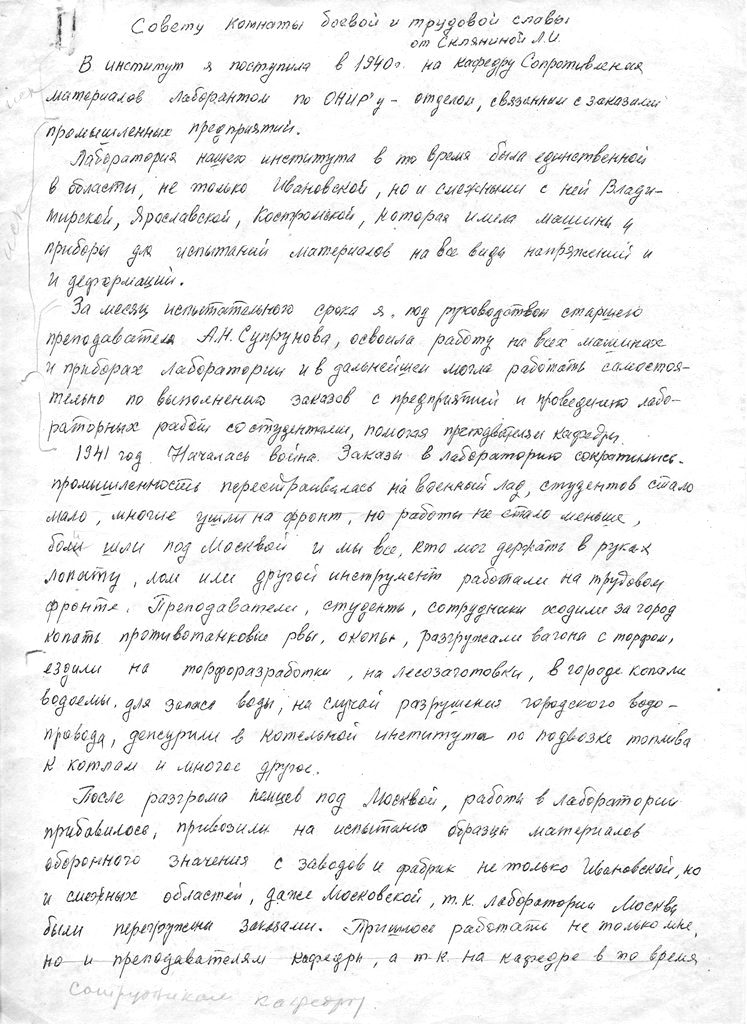 Совету комнаты боевой и трудовой славы
от Скляниной Л.И.
В институт я поступила в 1940г. на кафедру Сопротивления
материалов лаборантом по ОНИР'у - отделом, связанным с заказами
промышленных предприятий.
Лаборатория нашего института в то время была единственной
в области, не только Ивановской, но и смежными с ней Влади-
мирской, Ярославской, Костромской, которая имела машины и
приборы для испытаний материалов на все виды напряжений и
и деформаций.
За месяц испытательного срока я, под руководством старшего
преподавателя А.Н. Супрунова, освоила работу на всех машинах
и приборах лаборатории и в дальнейшем могла работать самостоя-
тельно по выполнению заказов с предприятий и проведению лабо-
раторных работ со студентами, помогая преподавателям кафедры.
1941 год. Началась война. Заказы в лабораторию сократились.
промышленность перестраивалась на военный лад, студентов стало
мало, многие ушли на фронт, но работы не стало меньше,
бои шли под Москвой и мы все, кто мог держать в руках
лопату, лом или другой инструмент работали на трудовом
фронте. Преподаватели, студенты, сотрудники ходили за город
копать противотанковые рвы, окопы, разгружали вагоны с торфом,
ездили на торфоразработки, на лесозаготовки, в городе копали
водоемы для запаса воды, на случай разрушения городского водо-
провода, дежурили в котельной института по подвозке топлива
к котлам и многое другое.
После разгрома немцев под Москвой, работы в лаборатории
прибавилось, привозили на испытания образцы материалов
оборонного значения с заводов и фабрик не только Ивановской, но
и смежных областей, даже Московской, т.к. лаборатории Москвы
были перегружены заказами. Пришлось работать не только мне,
но и преподавателям кафедры, а т.к. на кафедре в то время
сотрудникам кафедры